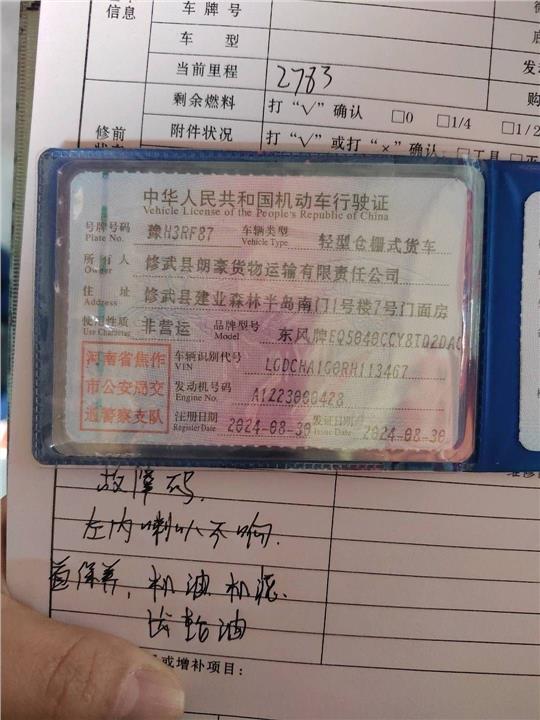 信息
车牌号
车 型
当前里程 2783
剩余燃料 打“√”确认 □0 □1/4 □1/2
修前 附件状况 打“√”或打“×”确认：□工具
中华人民共和国机动车行驶证
Vehicle License of the People's Republic of China
号牌号码 豫H3RF87 车辆类型 轻型仓栅式货车
Plate No. Vehicle Type
所有人 修武县朗豪货物运输有限责任公司
Owner
住 址 修武县建业森林半岛南门1号楼7号门面房
Address
使用性质 非营运 品牌型号 东风牌EQ5040CCY8TD2DAC
Use Character Model
河南省焦作 车辆识别代号 LGDCHA1G0RH113467
VIN
市公安局交 发动机号码 A1223000428
Engine No.
通警察支队 注册日期 2024-08-30 发证日期 2024-08-30
Register Date Issue Date
故障码.
左内喇叭不响.
首保养，机油机滤.
齿轮油
或增补项目：